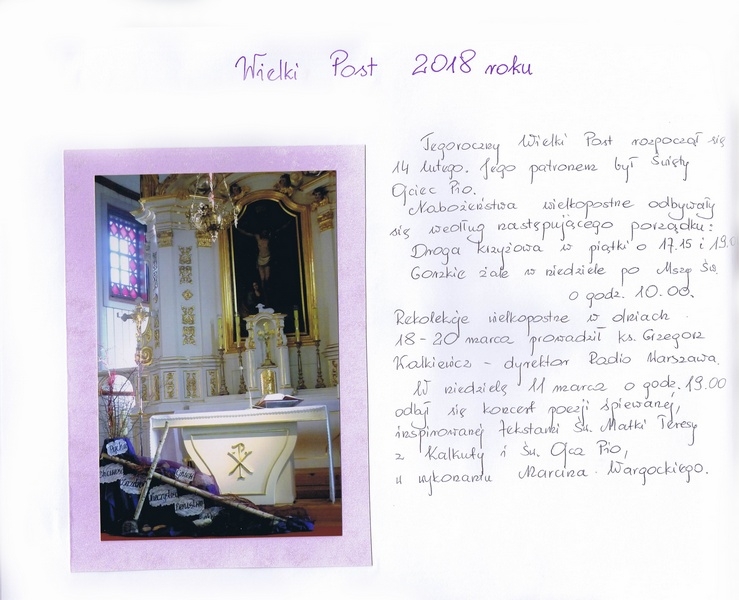 Wielki Post 2018 roku
Tegoroczny Wielki Post rozpoczął się
14 lutego. Jego patronem był Święty
Ojciec Pio.
Nabożeństwa wielkopostne odbywały
się według następującego porządku:
Droga krzyżowa w piątki o 17.15 i 19.0
Gorzkie żale w niedziele po Mszy Św.
o godz. 10.00.
Rekolekcje wielkopostne w dniach
18-20 marca prowadził ks. Grzegorz
Kalkiewicz - dyrektor Radio Warszawa.
W niedzielę 11 marca o godz. 19.00
odbył się koncert poezji śpiewanej,
inspirowanej tekstami Św. Matki Teresy
z Kalkuty i Św. Ojca Pio,
w wykonaniu Marcina Wargockiego.
Pycha